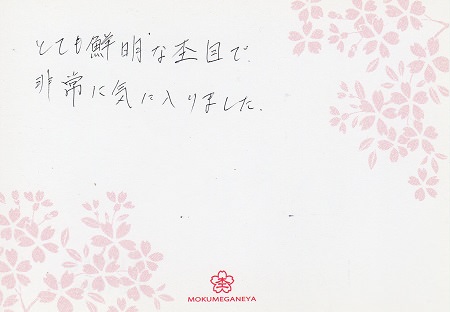 とても鮮明な杢目で、
非常に気に入りました。
杢
MOKUMEGANEYA